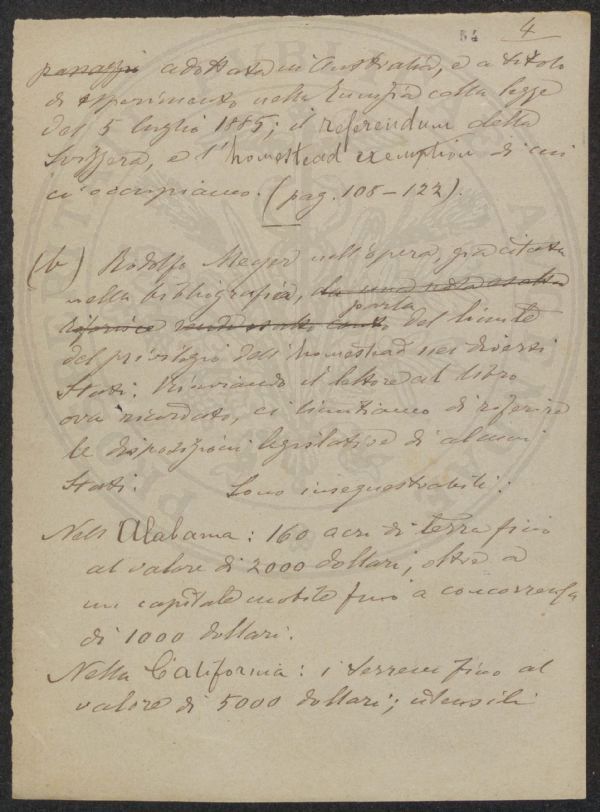 54 4
passaggi adottata in Australia, e a titolo
di esperimento nella colla legge
del 5 luglio 1885; il referendum della
Svizzera, e l'homestead exemption di cui
ci occupiamo. (pag. 105-122).
(b) Rodolfo Meyer nell'opera, già citata
nella bibliografia, da una nota esatta
parla
riferisce rendo esatto conto del limite
del privilegio dell'homestead nei diversi
Stati. Rinviando il lettore al libro
ora ricordato, ci limitiamo di riferire
le disposizioni legislative di alcuni
Stati. Sono insequestrabili:
Nell'Alabama: 160 acri di terra fino
al valore di 2000 dollari, oltre a
un capitale mobile fino a concorrenza
di 1000 dollari.
Nella California: i terreni fino al
valore di 5000 dollari; utensili